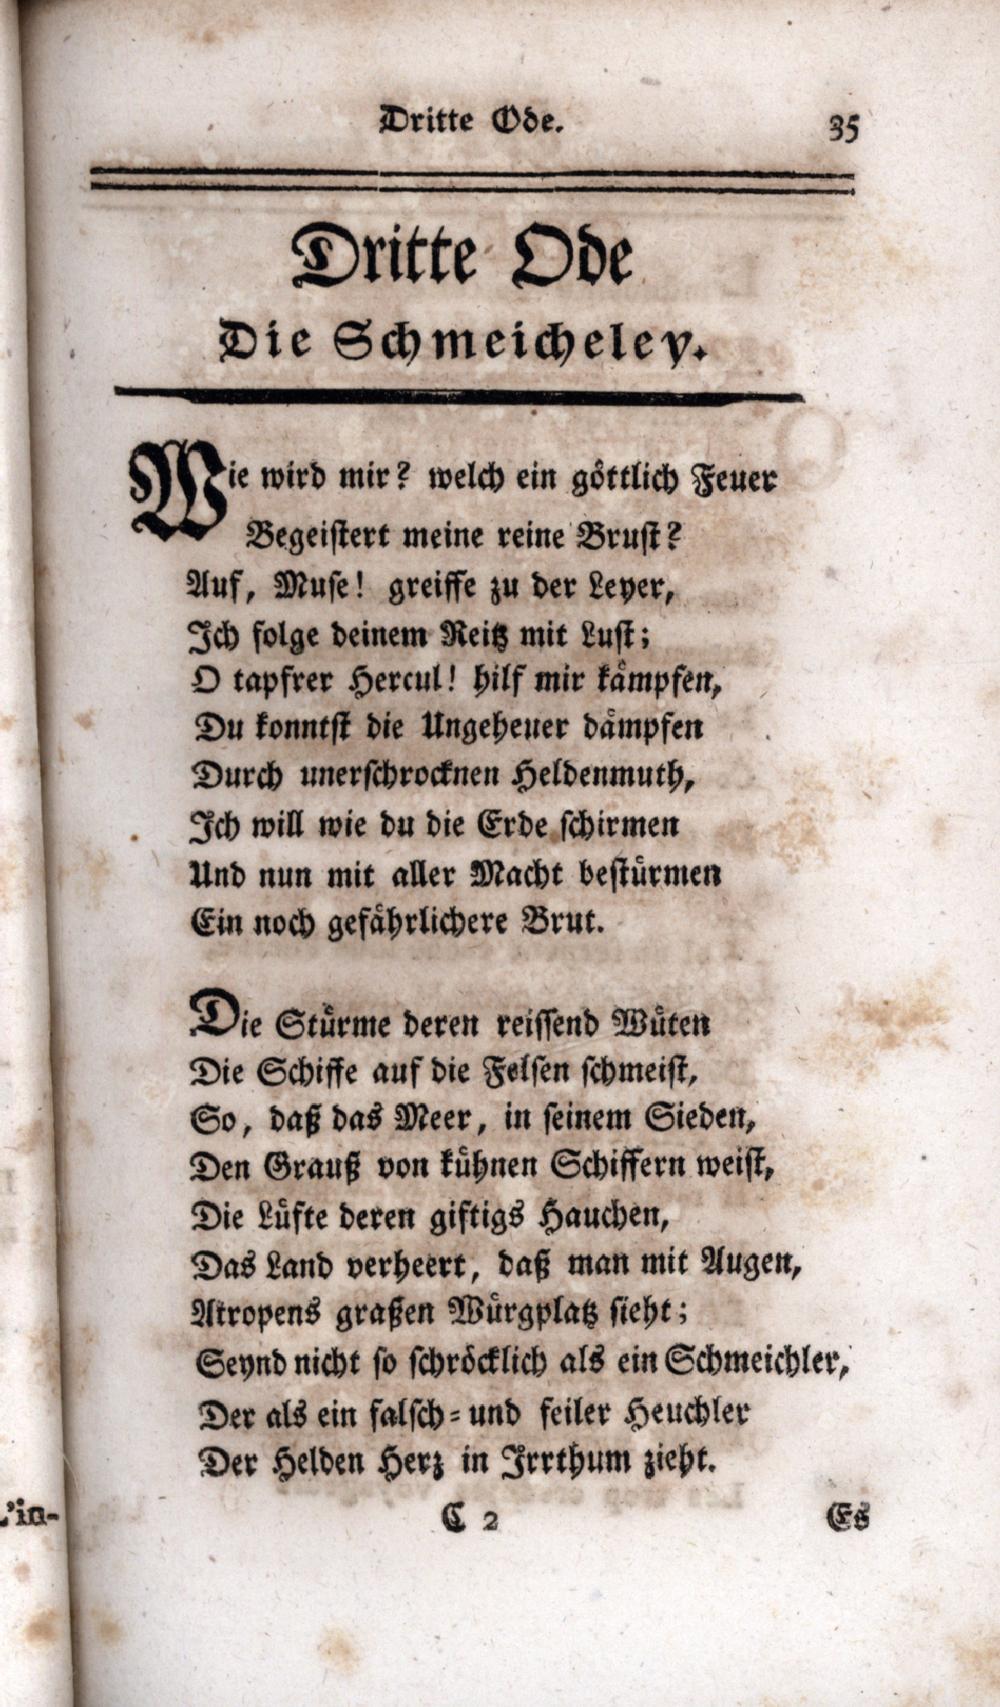 Dritte Ode. 35
Dritte Ode
Die Schmeicheley.
Wie wird mir? welch ein göttlich Feuer
Begeistert meine reine Brust?
Auf, Muse! greiffe zu der Leyer,
Ich folge deinem Reitz mit Lust;
O tapfrer Hercul! hilf mir kämpfen,
Du konntst die Ungeheuer dämpfen
Durch unerschrocknen Heldenmuth,
Ich will wie du die Erde schirmen
Und nun mit aller Macht bestürmen
Ein noch gefährlichere Brut.
Die Stürme deren reissend Wüten
Die Schiffe auf die Felsen schmeist,
So, daß das Meer, in seinem Sieden,
Den Grauß von kühnen Schiffern weist,
Die Lüfte deren giftigs Hauchen,
Das Land verheert, daß man mit Augen,
Atropens graßen Würgplatz sieht;
Seynd nicht so schröcklich als ein Schmeichler,
Der als ein falsch-und feiler Heuchler
Der Helden Herz in Irrthum zieht.
L'in- C 2 Es